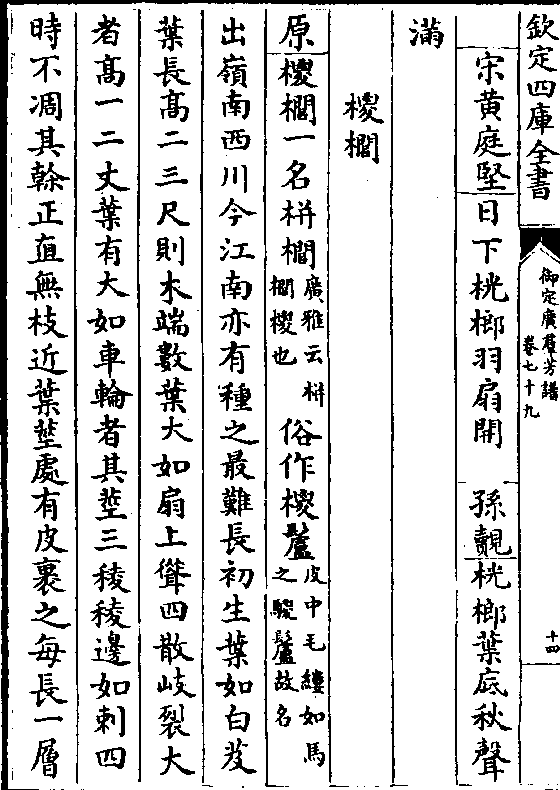 欽定四庫全書
御定廣羣芳譜
卷七十九
十四
宋黄庭堅日下桄榔羽扇開　孫覿桄榔葉底秋聲
滿
椶櫚
原椶櫚一名栟櫚廣雅云栟櫚椶也俗作椶鬛皮中毛縷如馬之騣鬛故名
出嶺南西川今江南亦有種之最難長初生葉如白芨
葉長髙二三尺則木端數葉大如扇上聳四散岐裂大
者髙一二丈葉有大如車輪者其莖三稜稜邊如刺四
時不凋其榦正直無枝近葉莖處有皮裹之每長一層